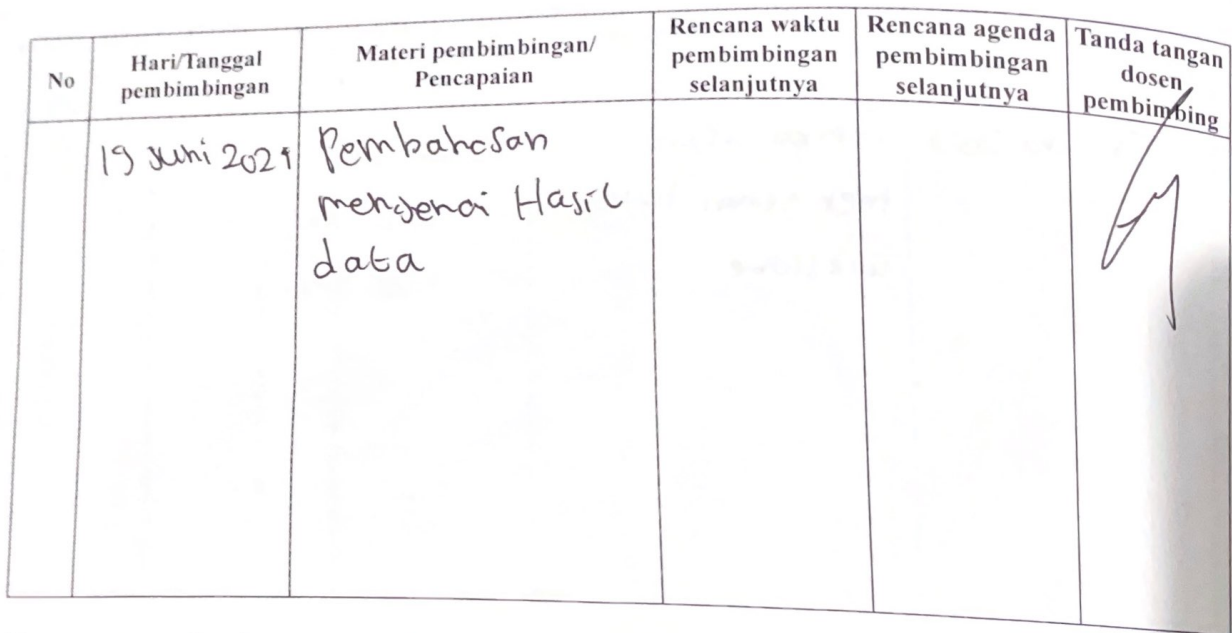 No
Hari/Tanggal
pembimbingan
Materi pembimbingan/
Pencapaian
Rencana waktu
pembimbingan
selanjutnya
Rencana agenda
pembimbingan
selanjutnya
Tanda tangan
dosen
pembimbing
19 Juni 2024
Pembahasan
mengenai Hasil
data